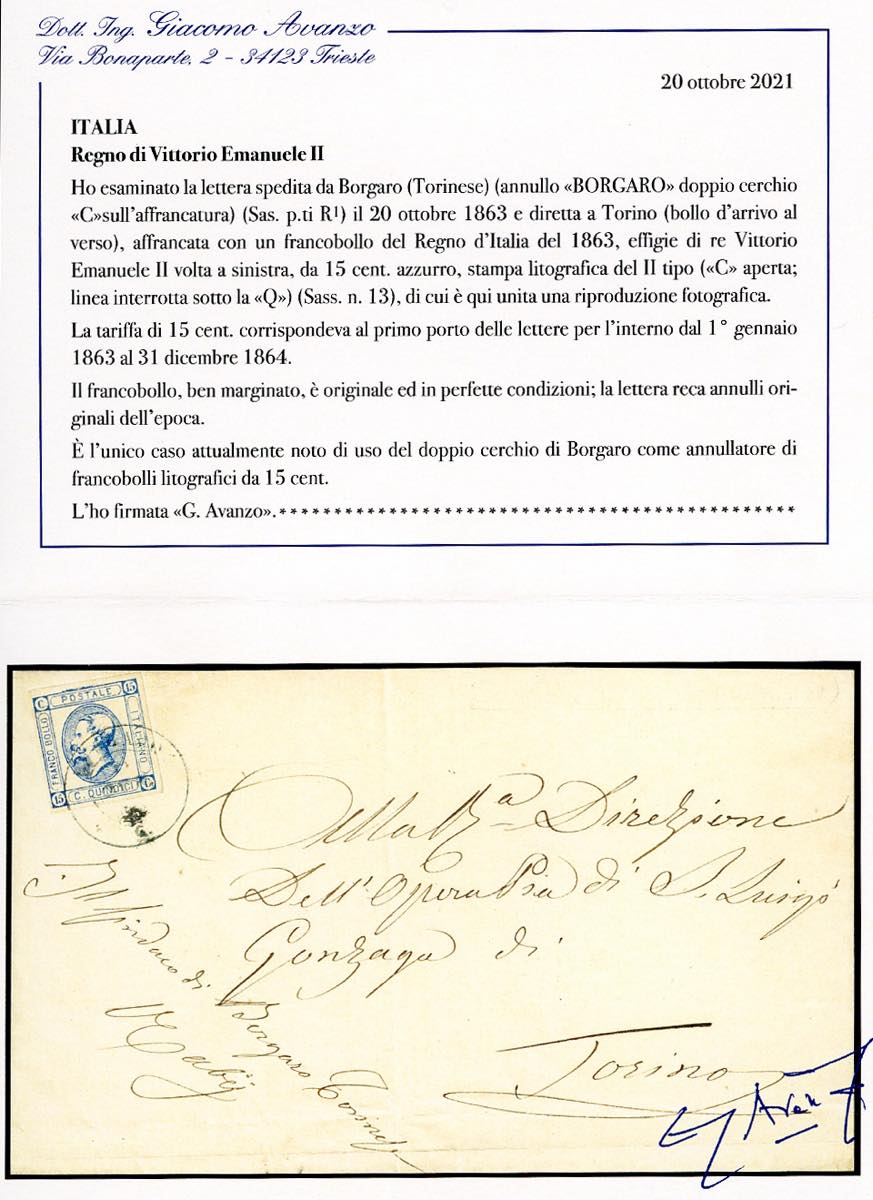 Dott. Ing. Giacomo Avanzo
Via Bonaparte, 2 - 34123 Trieste
20 ottobre 2021
ITALIA
Regno di Vittorio Emanuele II
Ho esaminato la lettera spedita da Borgaro (Torinese) (annullo «BORGARO» doppio cerchio
«C»sull'affrancatura) (Sas. p.ti R¹) il 20 ottobre 1863 e diretta a Torino (bollo d'arrivo al
verso), affrancata con un francobollo del Regno d'Italia del 1863, effigie di re Vittorio
Emanuele II volta a sinistra, da 15 cent. azzurro, stampa litografica del II tipo («C» aperta;
linea interrotta sotto la «Q») (Sass. n. 13), di cui è qui unita una riproduzione fotografica.
La tariffa di 15 cent. corrispondeva al primo porto delle lettere per l'interno dal 1° gennaio
1863 al 31 dicembre 1864.
Il francobollo, ben marginato, è originale ed in perfette condizioni; la lettera reca annulli ori-
ginali dell'epoca.
È l'unico caso attualmente noto di uso del doppio cerchio di Borgaro come annullatore di
francobolli litografici da 15 cent.
L'ho firmata «G. Avanzo».***********************************************
C POSTALE 15
FRANCO BOLLO
ITALIANO
15 C. QUINDICI C
Alla Direzione
Dell'Opera Pia di S. Luigi
Gonzaga di
Torino
Il Sindaco di Borgaro Torinese